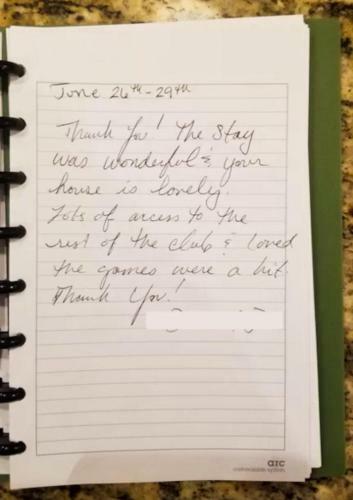 June 26th - 29th
Thank You! The Stay
was wonderful & your
house is lovely.
Lots of access to the
rest of the club & loved
the games were a hit.
Thank You!
arc
customizable system